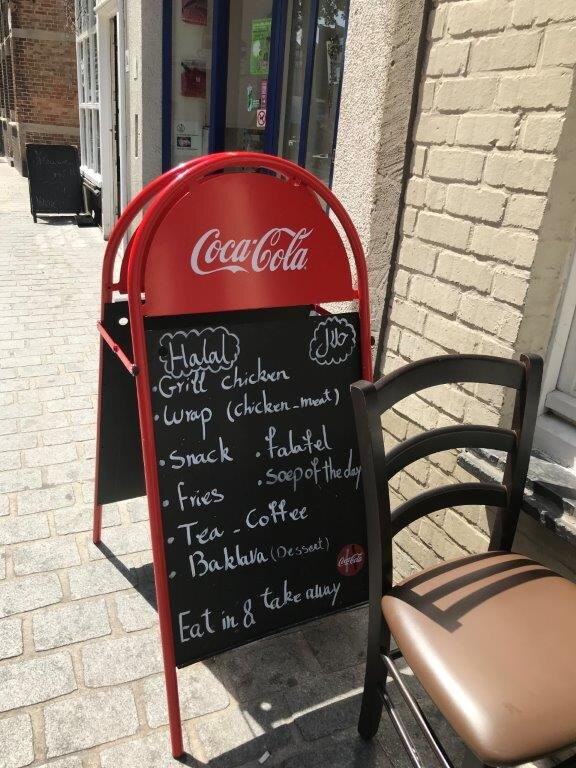 Coca-Cola
Halal
• Grill chicken
• Wrap (chicken-meat)
• Snack • falafel
• Fries • soep of the day
• Tea - Coffee
• Baklava (Dessert)
Coca-Cola
Eat in & take away